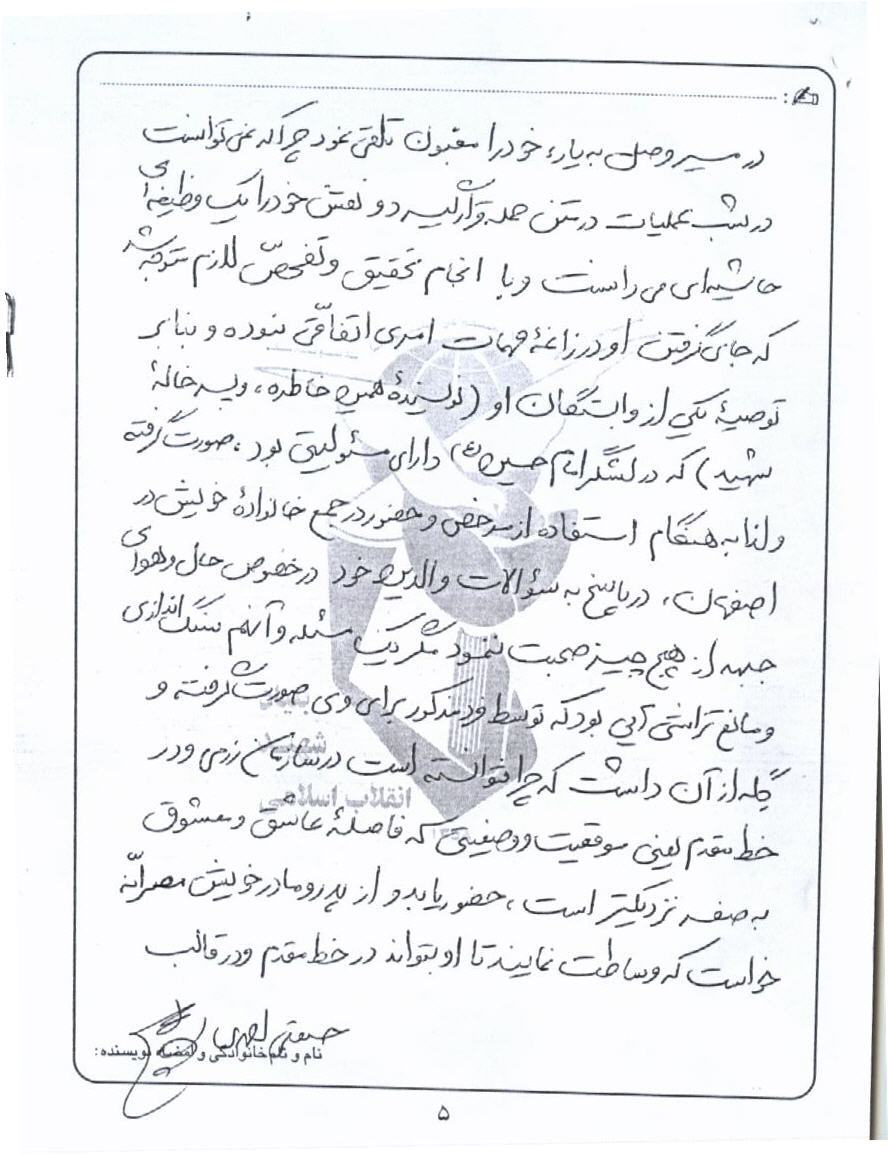 در مسیر وصل به یار، خود را مغبون تلقی نمود چرا که نمی توانست
در شب عملیات در متن حمله قرار گیرد و نقش خود را یک وظیفه ای
حاشیه ای می دانست و با انجام تحقیق و تفحّص لازم متوجه شد
که جای گرفتن او در زاغهٔ مهمات امری اتفاقی نبوده و بنا بر
توصیهٔ یکی از وابستگان او (نویسندهٔ همین خاطره، و پسر خالهٔ
شهید) که در لشگر امام حسین (ع) دارای مسئولیتی بود، صورت گرفته
و لذا به هنگام استفاده از مرخصی و حضور در جمع خانوادهٔ خویش در
اصفهان، در پاسخ به سؤالات والدین خود در خصوص حال و هوای
جبهه از هیچ چیز صحبت ننمود مگر یک مسئله و آنهم سنگ اندازی
و مانع تراشی آیی بود که توسط فرد مذکور برای وی صورت گرفته و
گله از آن داشت که چرا نتوانسته است در سازمان رزمی و در
خط مقدم یعنی موقعیت و وضعیتی که فاصلهٔ عاشق و معشوق
به صفر نزدیکتر است، حضور یابد و از پدر و مادر خویش مصرانّه
خواست که وساطت نمایند تا او بتواند در خط مقدم و در قالب
نام و نام خانوادگی و امضاء نویسنده:
شهید
انقلاب اسلامی
۵